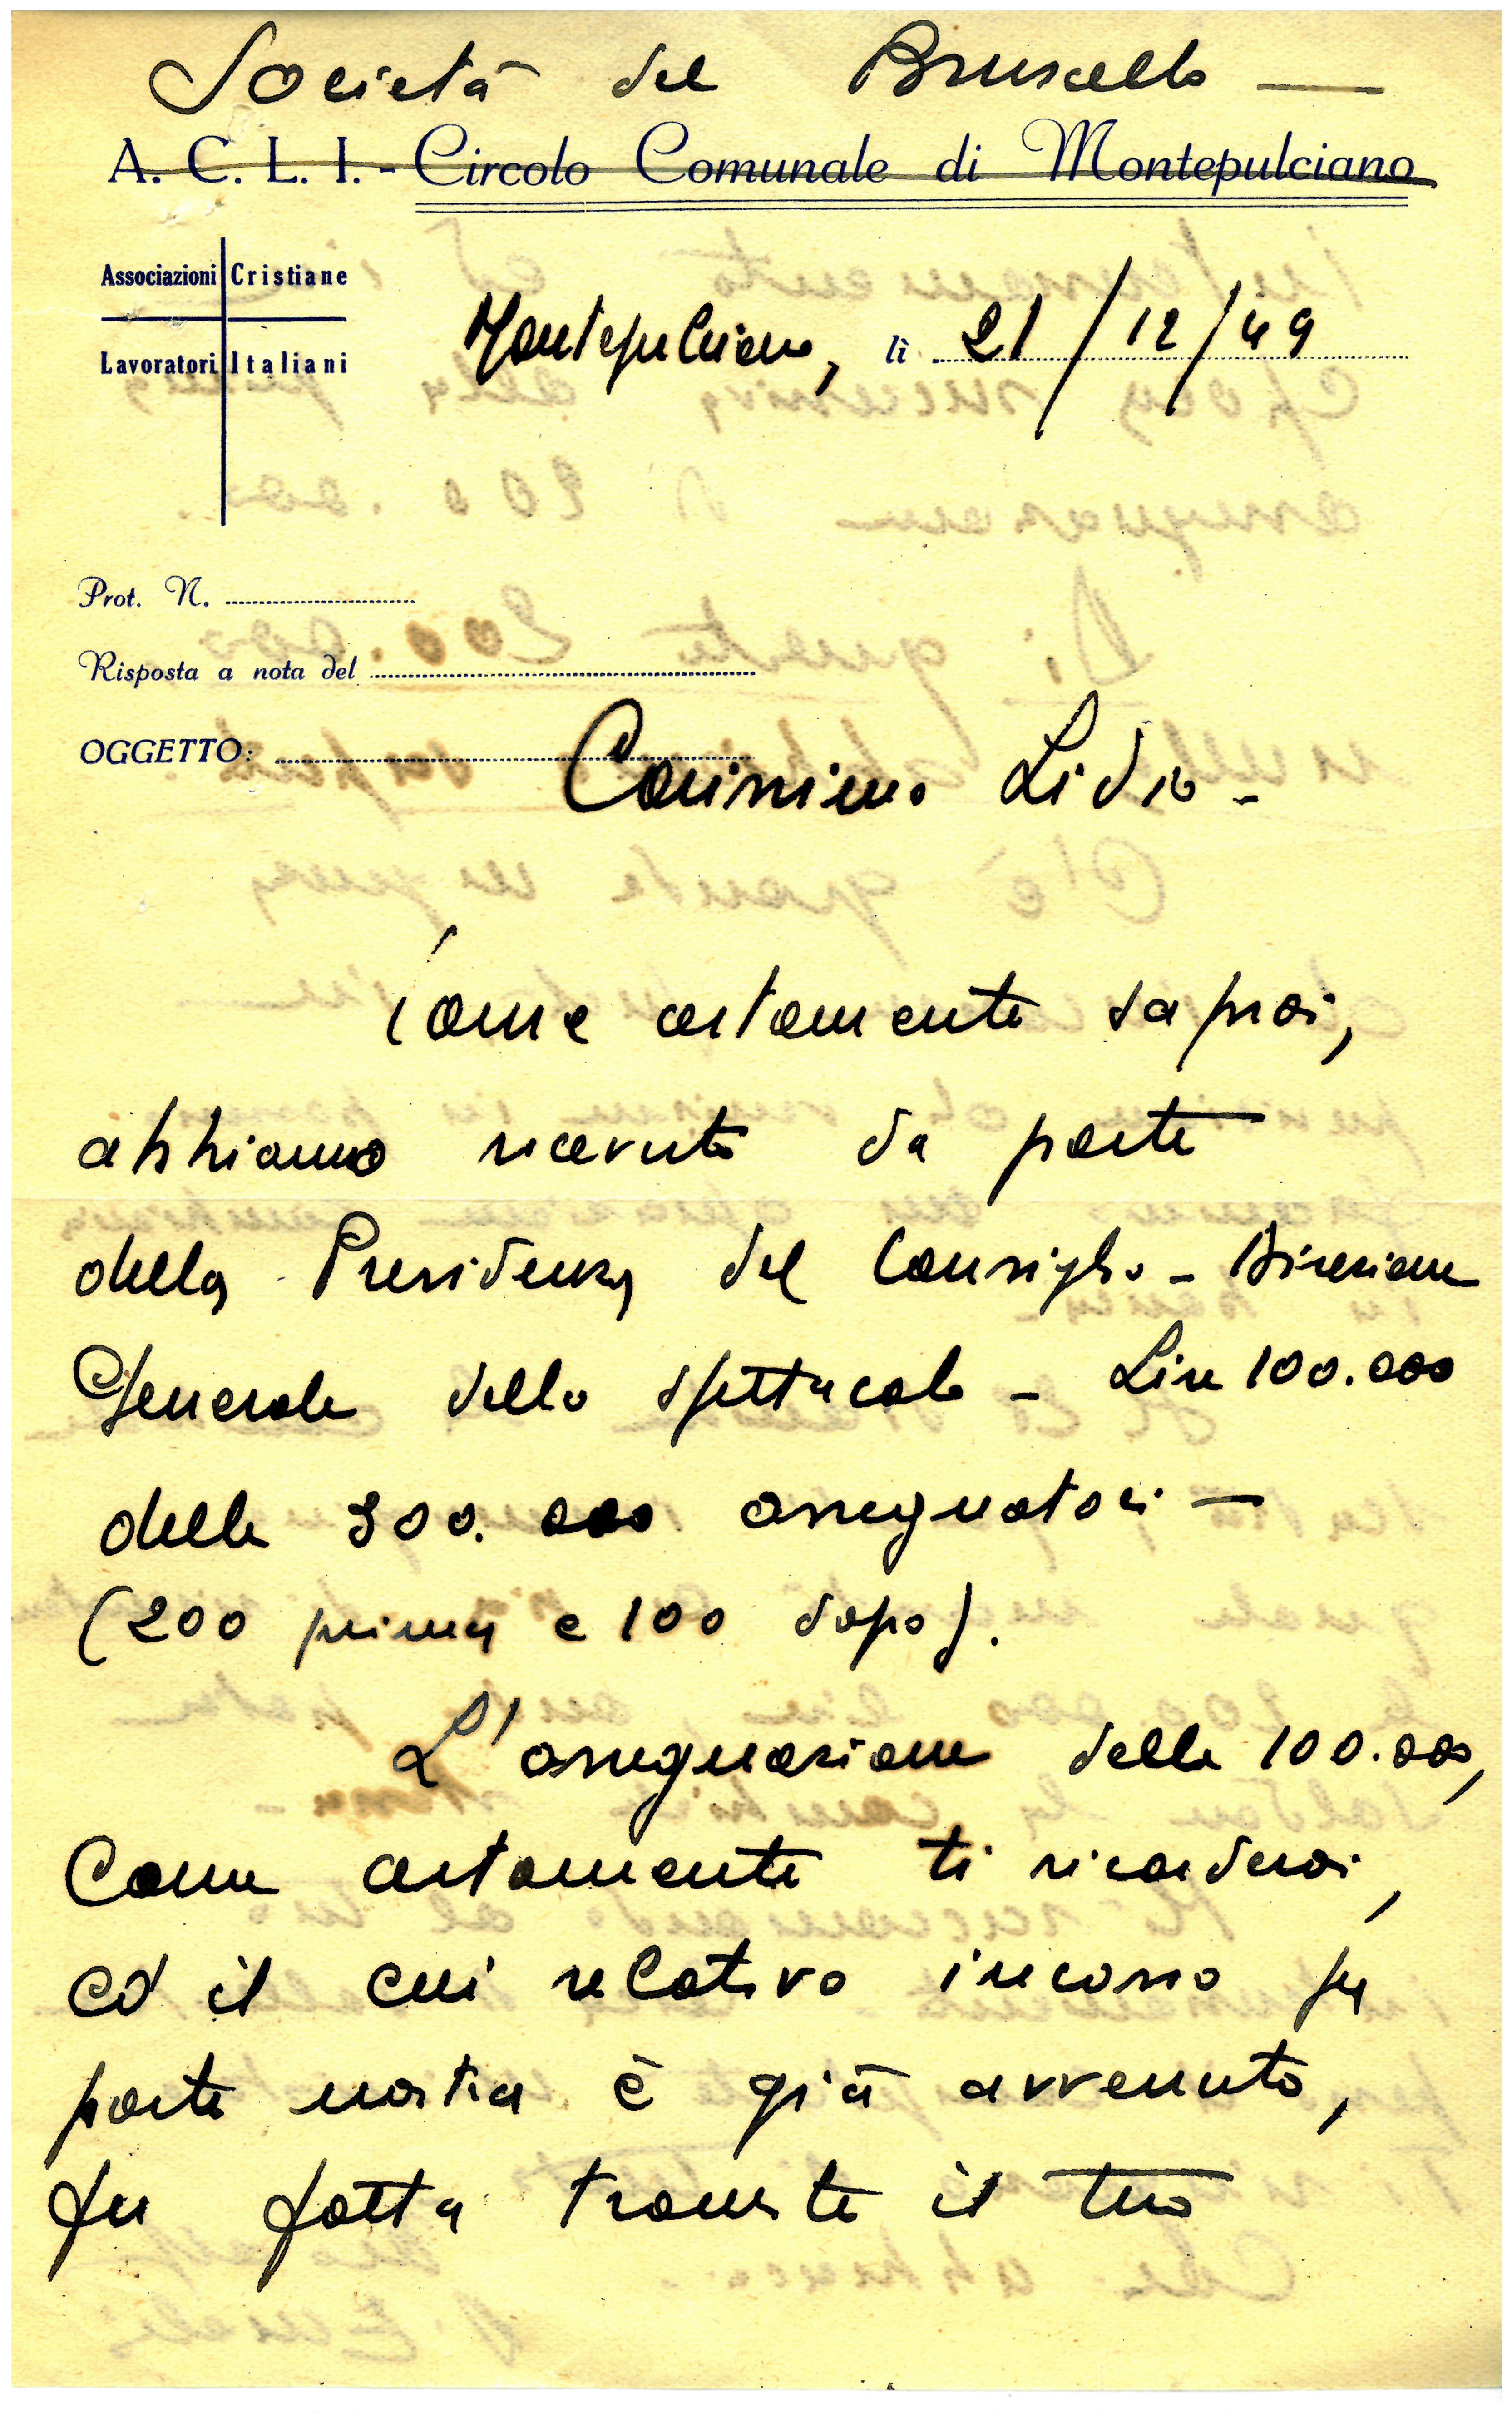 Società del Bruscello —
A. C. L. I. - Circolo Comunale di Montepulciano
Associazioni Cristiane
Lavoratori Italiani
Montepulciano, lì 21/12/49
Prot. N.
Risposta a nota del
OGGETTO:
Carissimo Lidio -
Come certamente saprai,
abbiamo ricevuto da parte
della Presidenza del Consiglio - Direzione
Generale dello Spettacolo - Lire 100.000
delle 300.000 assegnatoci —
(200 prima e 100 dopo).
L'assegnazione delle 100.000,
Come certamente ti ricorderai,
ed il cui relativo incasso da
parte nostra è già avvenuto,
fu fatta tramite il tuo